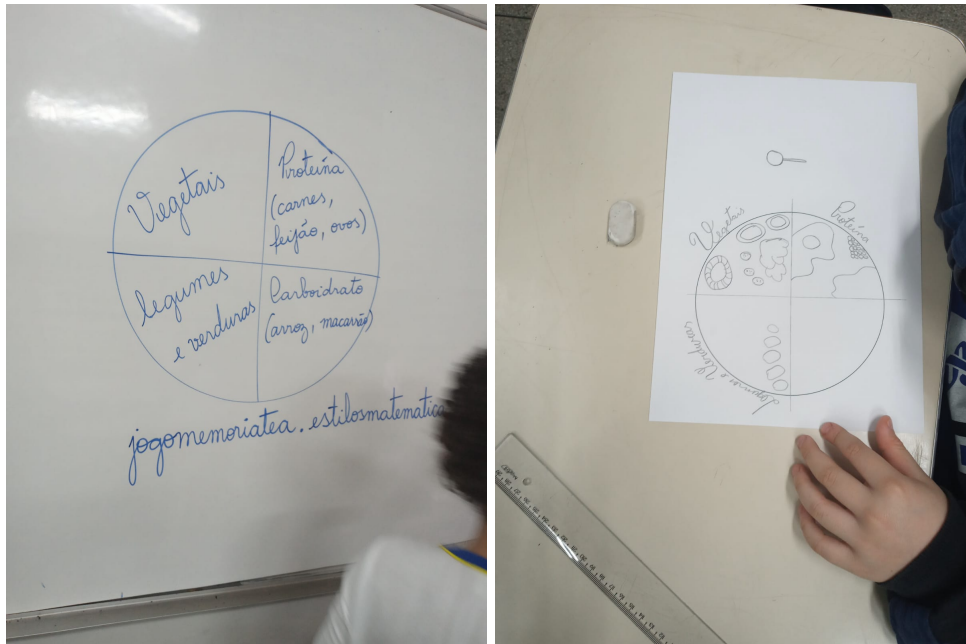 Vegetais
Proteína
(carnes,
feijão, ovos)
legumes
e verduras
Carboidrato
(arroz, macarrão)
jogomemoriatea.estilosmatematica
Vegetais
Proteína
Legumes e Verduras